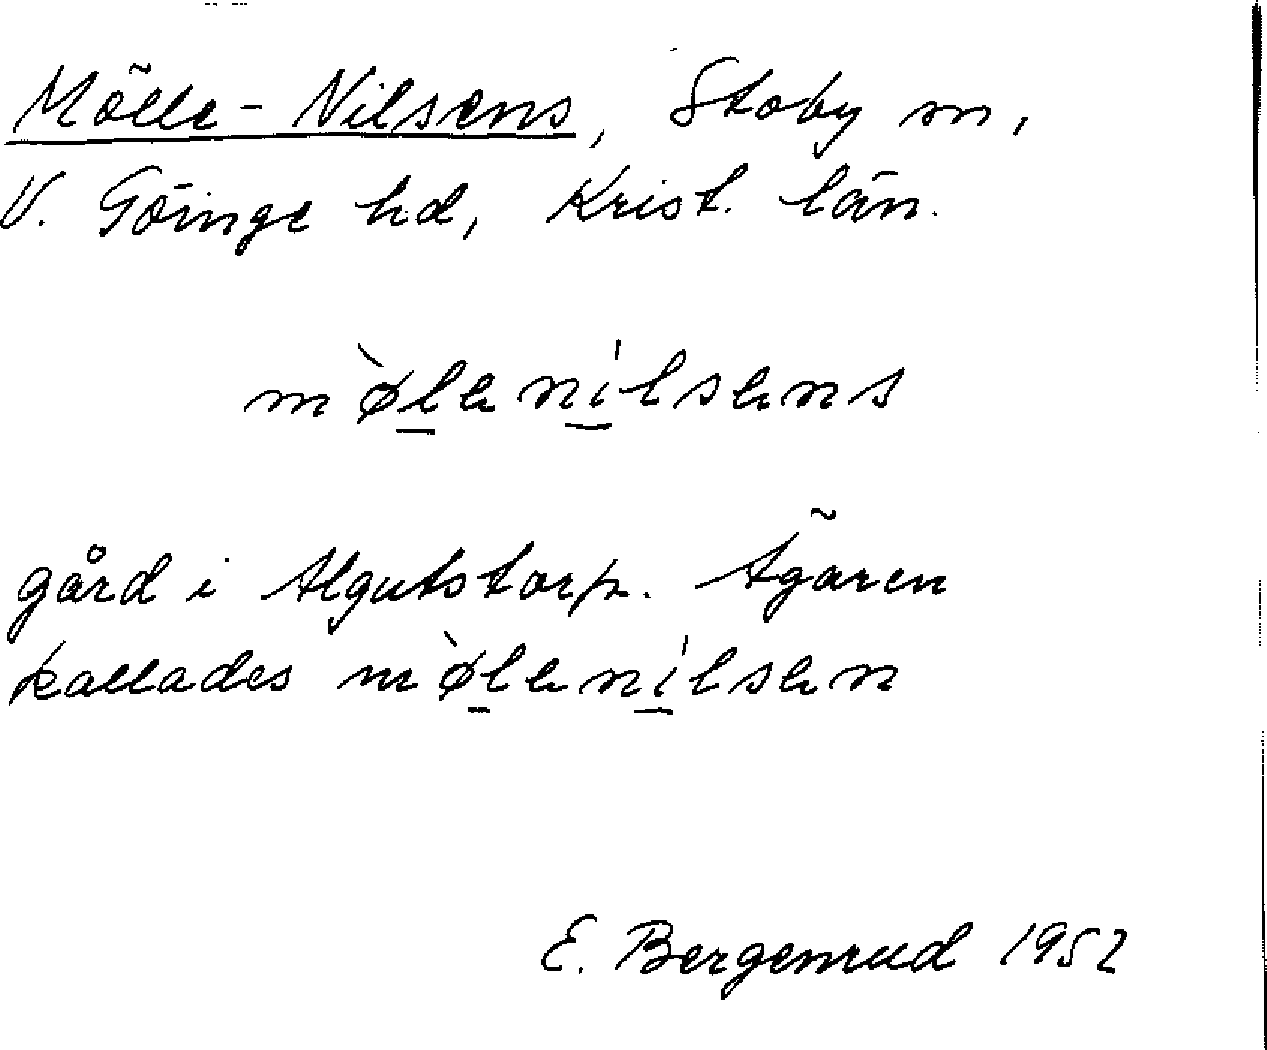 Mölle-Nilsens, Stoby sn,
V. Göinge hd, Krist. län.
mø̀lenílsens
gård i Algutstorp. Ägaren
kallades mø̀lenílsen
E. Bergenrud 1952